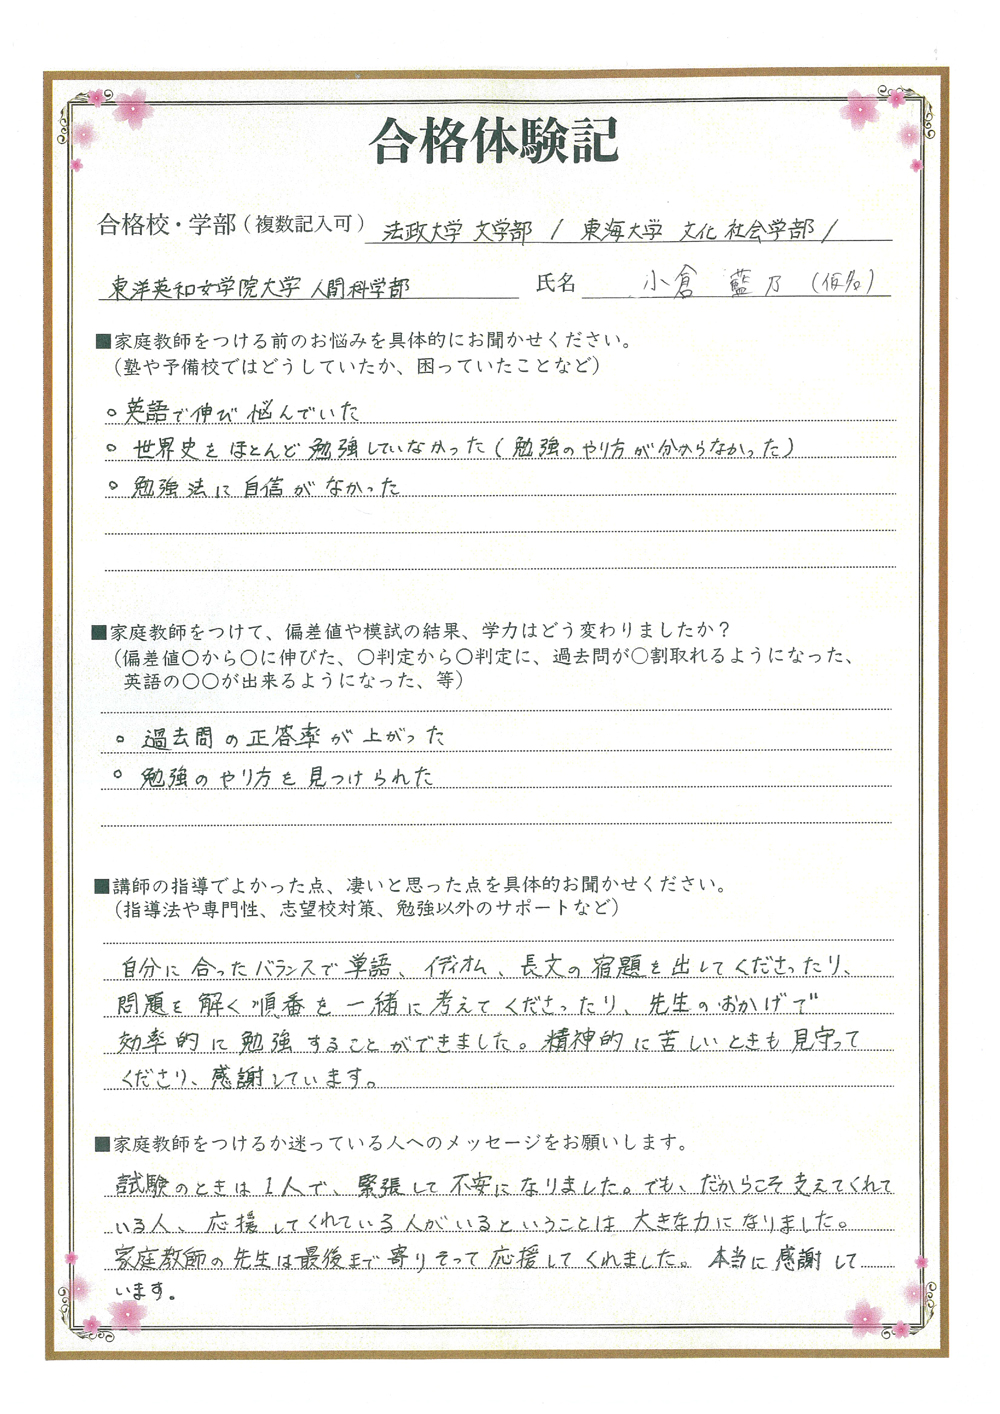 合格体験記
合格校・学部（複数記入可） 法政大学 文学部 / 東海大学 文化社会学部 /
東洋英和女学院大学 人間科学部 氏名 小倉 藍乃 (仮名)
■家庭教師をつける前のお悩みを具体的にお聞かせください。
（塾や予備校ではどうしていたか、困っていたことなど）
○ 英語で伸び悩んでいた
○ 世界史をほとんど勉強していなかった(勉強のやり方が分からなかった)
○ 勉強法に自信がなかった
■家庭教師をつけて、偏差値や模試の結果、学力はどう変わりましたか？
（偏差値〇から〇に伸びた、〇判定から〇判定に、過去問が〇割取れるようになった、
英語の〇〇が出来るようになった、等）
○ 過去問の正答率が上がった
○ 勉強のやり方を見つけられた
■講師の指導でよかった点、凄いと思った点を具体的お聞かせください。
（指導法や専門性、志望校対策、勉強以外のサポートなど）
自分に合ったバランスで単語、イディオム、長文の宿題を出してくださったり、
問題を解く順番を一緒に考えてくださったり、先生のおかげで
効率的に勉強することができました。精神的に苦しいときも見守って
くださり、感謝しています。
■家庭教師をつけるか迷っている人へのメッセージをお願いします。
試験のときは1人で、緊張して不安になりました。でも、だからこそ支えてくれて
いる人、応援してくれている人がいるということは大きな力になりました。
家庭教師の先生は最後まで寄りそって応援してくれました。本当に感謝して
います。